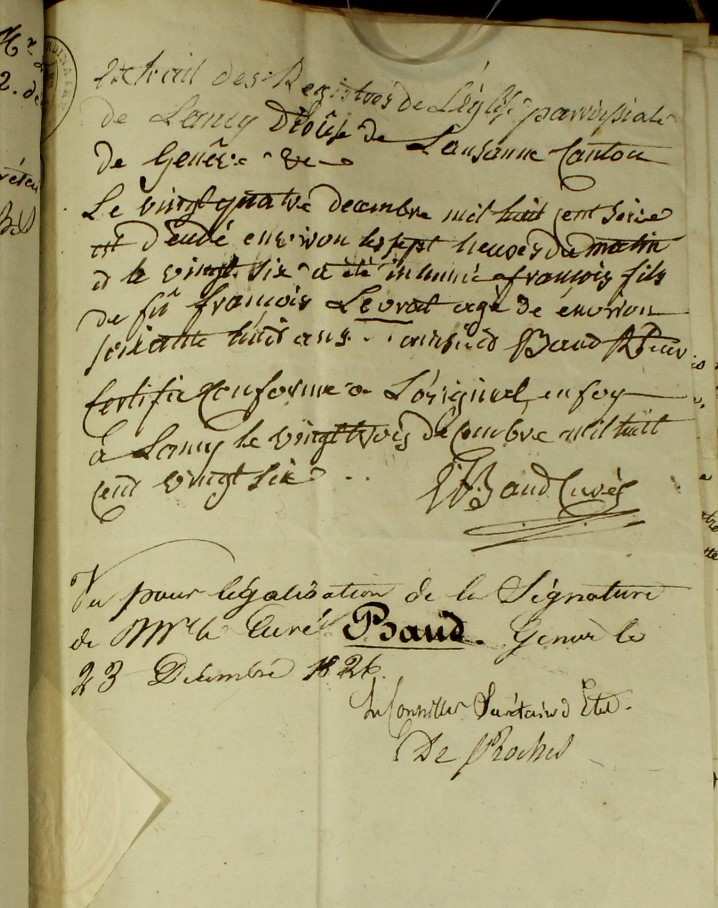 Extrait des Registres de L'église parroissiale
de Lancy Diôcèse de Lausanne Canton
de Genêve &c
Le vingt quatre decembre mil huit cent seize
est décédé environ les sept heures du matin
et le vingt six a été inhumé françois fils
de fû françois Levrat agé de environ
soixante huit ans. ainsi est Baud
Certifié Conforme a L'original en foy
à Lancy le vingt trois décembre mil huit
cent vingt six
Baud Curé
Vu pour légalisation de la Signature
de Mr le Curé Baud. Genève le
23 Décembre 1826.
Le Conseiller Secrétaire d'Etat.
De Roches